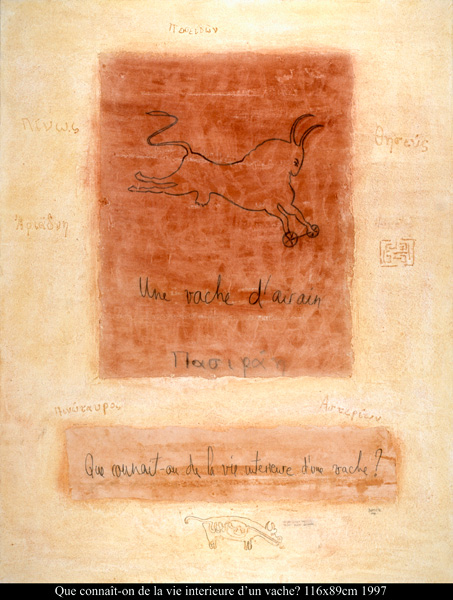 Ποσειδών
Μίνως
Θησεύς
Ἀριάδνη
Une vache d'airain
Πασιφαη
Ἀστερίων
Que connait-on de la vie interieure d'une vache ?
Que connaît-on de la vie interieure d'un vache? 116x89cm 1997